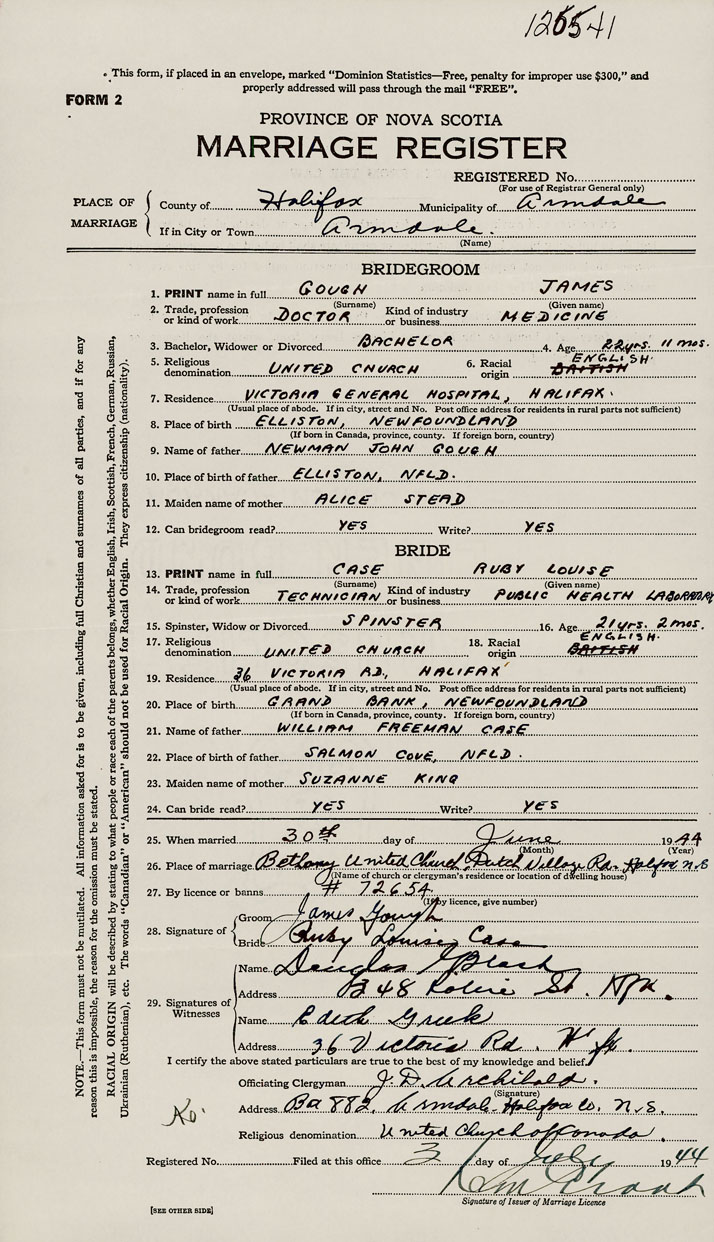 125541
This form, if placed in an envelope, marked "Dominion Statistics—Free, penalty for improper use $300," and
properly addressed will pass through the mail "FREE".
FORM 2
PROVINCE OF NOVA SCOTIA
MARRIAGE REGISTER
REGISTERED No.
(For use of Registrar General only)
PLACE OF MARRIAGE
County of Halifax Municipality of Armdale
If in City or Town Armdale.
(Name)
BRIDEGROOM
1. PRINT name in full GOUGH JAMES
(Surname) (Given name)
2. Trade, profession or kind of work DOCTOR Kind of industry or business MEDICINE
3. Bachelor, Widower or Divorced BACHELOR 4. Age 22 yrs. 11 mos.
5. Religious denomination UNITED CHURCH 6. Racial origin ENGLISH. BRITISH
7. Residence VICTORIA GENERAL HOSPITAL, HALIFAX.
(Usual place of abode. If in city, street and No. Post office address for residents in rural parts not sufficient)
8. Place of birth ELLISTON, NEWFOUNDLAND
(If born in Canada, province, county. If foreign born, country)
9. Name of father NEWMAN JOHN GOUGH
10. Place of birth of father ELLISTON, NFLD.
11. Maiden name of mother ALICE STEAD
12. Can bridegroom read? YES Write? YES
BRIDE
13. PRINT name in full CASE RUBY LOUISE
(Surname) (Given name)
14. Trade, profession or kind of work TECHNICIAN Kind of industry or business PUBLIC HEALTH LABORATORY
15. Spinster, Widow or Divorced SPINSTER 16. Age 21 yrs. 2 mos.
17. Religious denomination UNITED CHURCH 18. Racial origin ENGLISH. BRITISH
19. Residence 36 VICTORIA RD., HALIFAX
(Usual place of abode. If in city, street and No. Post office address for residents in rural parts not sufficient)
20. Place of birth GRAND BANK, NEWFOUNDLAND
(If born in Canada, province, county. If foreign born, country)
21. Name of father WILLIAM FREEMAN CASE
22. Place of birth of father SALMON COVE, NFLD.
23. Maiden name of mother SUZANNE KING
24. Can bride read? YES Write? YES
25. When married 30th day of June 1944
(Month) (Year)
26. Place of marriage Bethany United Church, Dutch Village Rd. Halifax N.S
(Name of church or clergyman's residence or location of dwelling house)
27. By licence or banns # 72654
(If by licence, give number)
28. Signature of
Groom James Gough
Bride Ruby Louise Case
29. Signatures of Witnesses
Name Douglas Black
Address 348 Robie St. Hfx.
Name Edith
Address 36 Victoria Rd. Hfx.
I certify the above stated particulars are true to the best of my knowledge and belief.
Officiating Clergyman J. D. Archibald.
(Signature)
Address Box 882, Armdale Halifax Co. N.S.
Religious denomination United Church of Canada.
Registered No. Filed at this office 3 day of July 1944
Signature of Issuer of Marriage Licence
[SEE OTHER SIDE]
NOTE.—This form must not be mutilated. All information asked for is to be given, including full Christian and surnames of all parties, and if for any
reason this is impossible, the reason for the omission must be stated.
RACIAL ORIGIN will be described by stating to what people or race each of the parents belongs, whether English, Irish, Scottish, French, German, Russian,
Ukrainian (Ruthenian), etc. The words "Canadian" or "American" should not be used for Racial Origin. They express citizenship (nationality).